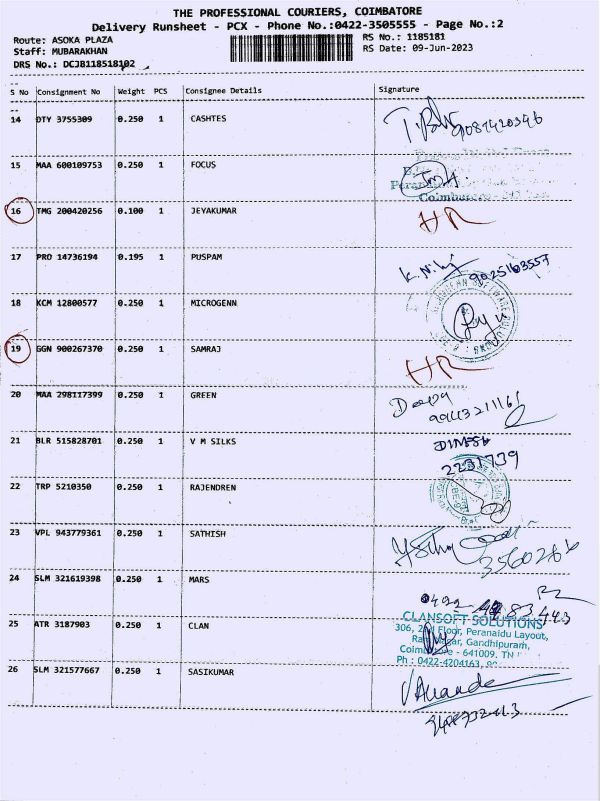 THE PROFESSIONAL COURIERS, COIMBATORE
Delivery Runsheet - PCX - Phone No.:0422-3505555 - Page No.:2
Route: ASOKA PLAZA RS No.: 1185181
Staff: MUBARAKHAN RS Date: 09-Jun-2023
DRS No.: DCJB118518102
S No Consignment No Weight PCS Consignee Details Signature
14 DTY 3755309 0.250 1 CASHTES 9087420346
15 MAA 600109753 0.250 1 FOCUS
16 TMG 200420256 0.100 1 JEYAKUMAR HR
17 PRO 14736194 0.195 1 PUSPAM 9025163557
18 KCM 12800577 0.250 1 MICROGENN
19 GGN 900267370 0.250 1 SAMRAJ HR
20 MAA 298117399 0.250 1 GREEN 99443211161
21 BLR 515828701 0.250 1 V M SILKS DINESH
2231739
22 TRP 5210350 0.250 1 RAJENDREN
23 VPL 943779361 0.250 1 SATHISH
24 SLM 321619398 0.250 1 MARS
25 ATR 3187903 0.250 1 CLAN CLANSOFT SOLUTIONS
306, 2nd Floor, Peranaidu Layout,
Gandhipuram,
Coimbatore - 641009. TN
Ph : 0422-4204163,
26 SLM 321577667 0.250 1 SASIKUMAR